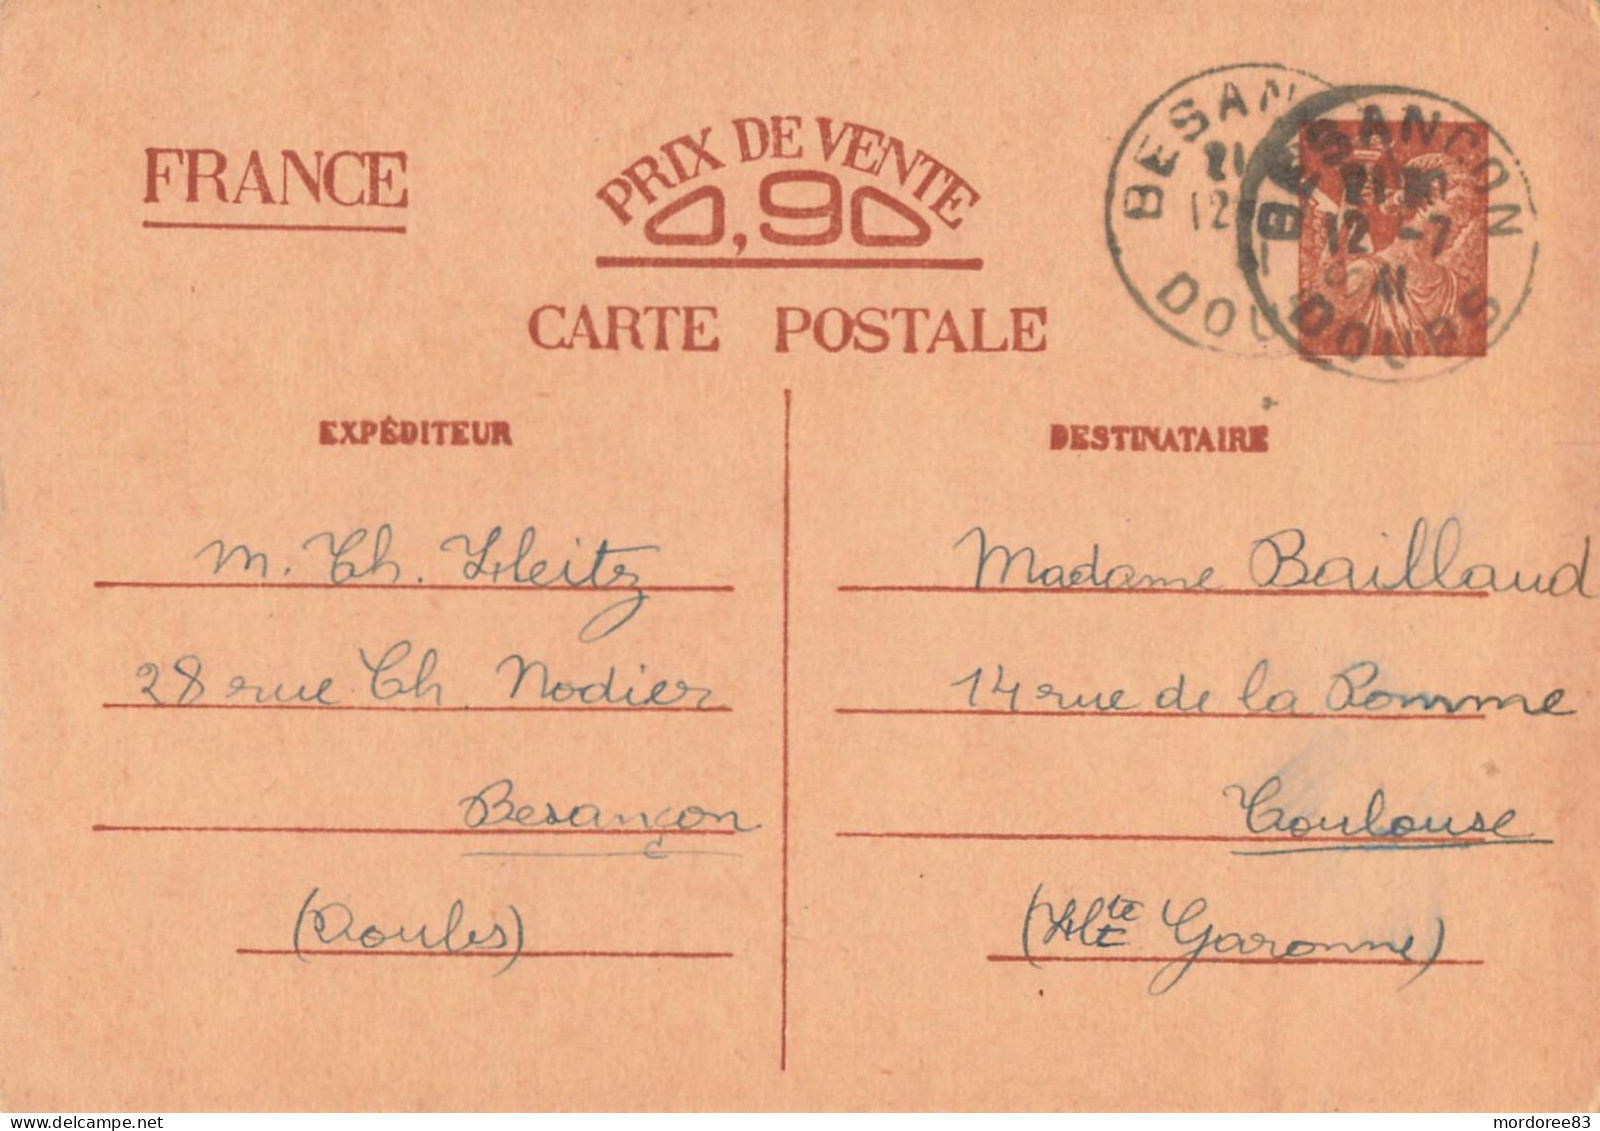 FRANCE
PRIX DE VENTE
0,90
CARTE POSTALE
BESAN
21
12
DOU
BESANCON
21 30
12 -7
41
DOUBS
EXPÉDITEUR
M. Ch. Heitz
28 rue Ch. Nodier
Besançon
(Doubs)
DESTINATAIRE
Madame Baillaud
14 rue de la Pomme
Toulouse
(Hte Garonne)
mordoree83